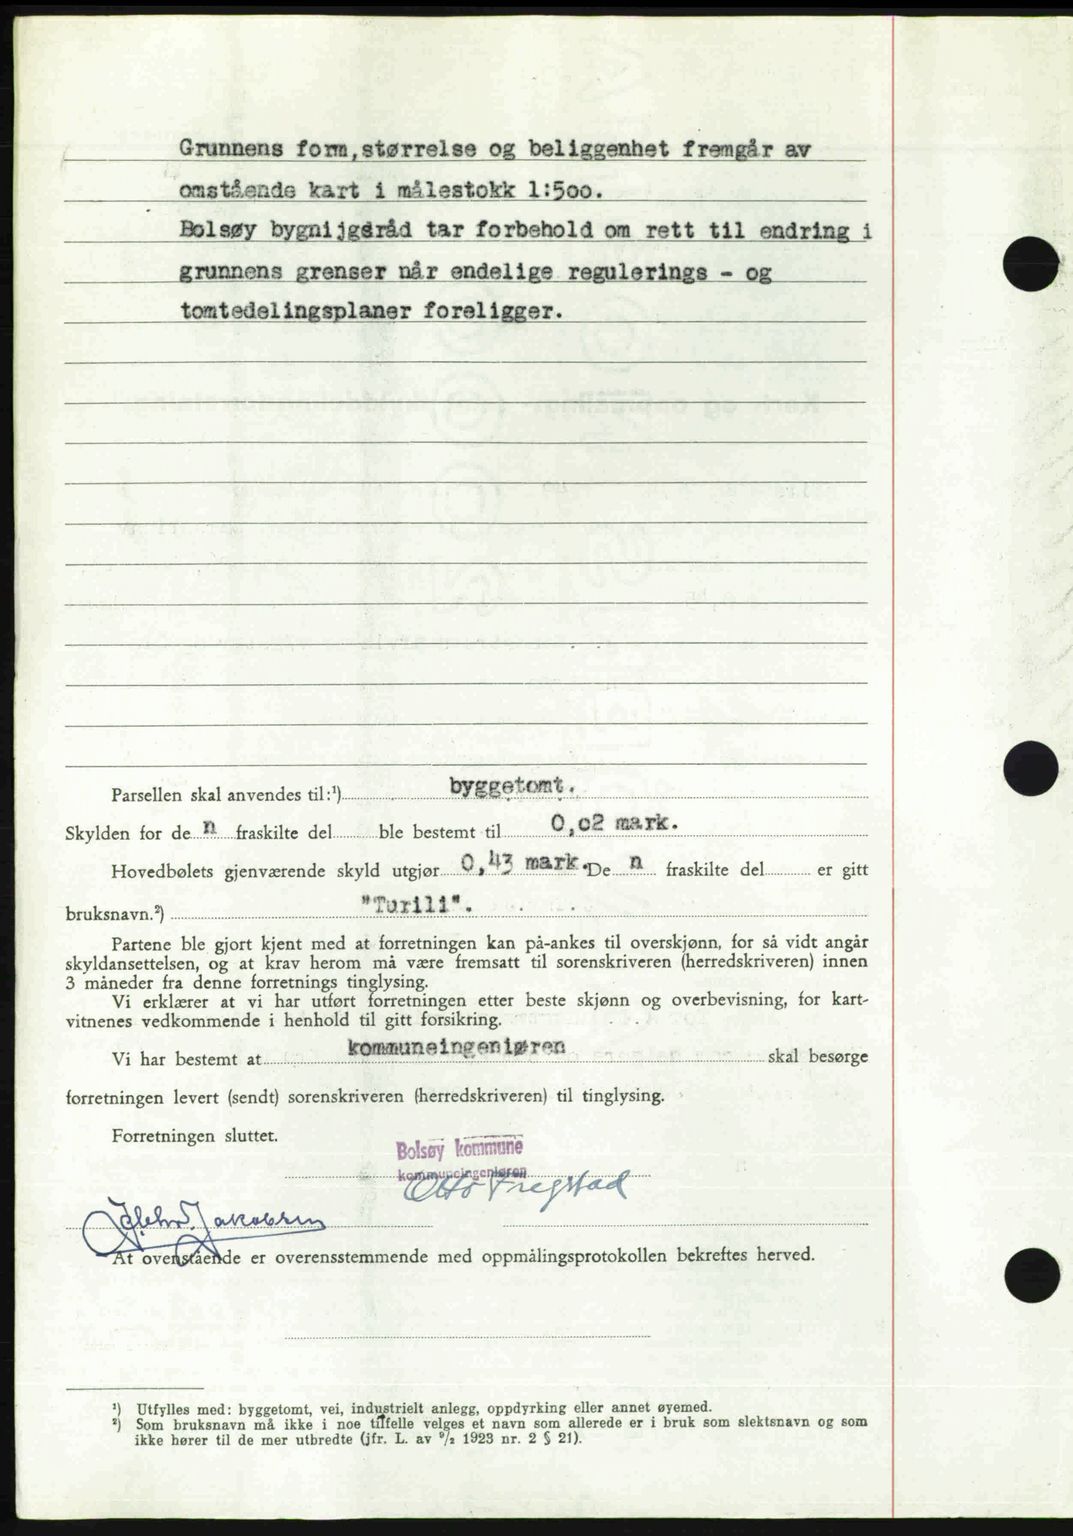 Grunnens form, størrelse og beliggenhet fremgår av
omstående kart i målestokk 1:500.
Bolsøy bygnijgsråd tar forbehold om rett til endring i
grunnens grenser når endelige regulerings - og
tomtedelingsplaner foreligger.
Parsellen skal anvendes til:¹) byggetomt.
Skylden for de n fraskilte del ble bestemt til 0,02 mark.
Hovedbølets gjenværende skyld utgjør 0,43 mark. De n fraskilte del er gitt
bruksnavn.²) "Turili".
Partene ble gjort kjent med at forretningen kan på-ankes til overskjønn, for så vidt angår
skyldansettelsen, og at krav herom må være fremsatt til sorenskriveren (herredskriveren) innen
3 måneder fra denne forretnings tinglysing.
Vi erklærer at vi har utført forretningen etter beste skjønn og overbevisning, for kart-
vitnenes vedkommende i henhold til gitt forsikring.
Vi har bestemt at kommuneingeniøren skal besørge
forretningen levert (sendt) sorenskriveren (herredskriveren) til tinglysing.
Forretningen sluttet.
Bolsøy kommune
kommuneingeniøren
Otto Fregstad
Jakobsen
At ovenstående er overensstemmende med oppmålingsprotokollen bekreftes herved.
¹) Utfylles med: byggetomt, vei, industrielt anlegg, oppdyrking eller annet øyemed.
²) Som bruksnavn må ikke i noe tilfelle velges et navn som allerede er i bruk som slektsnavn og som
ikke hører til de mer utbredte (jfr. L. av ⁹/₂ 1923 nr. 2 § 21).